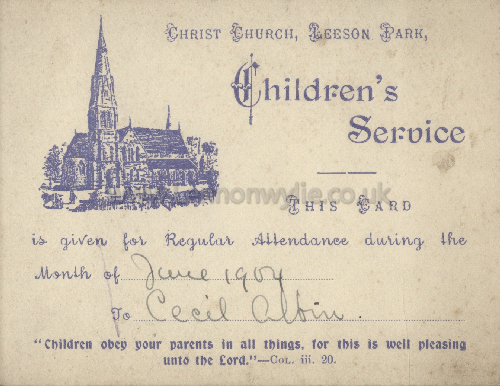 Christ Church, Leeson Park,
Children's
Service
This Card
is given for Regular Attendance during the
Month of June 1904
To Cecil Albin.
"Children obey your parents in all things, for this is well pleasing
unto the Lord."—Col. iii. 20.